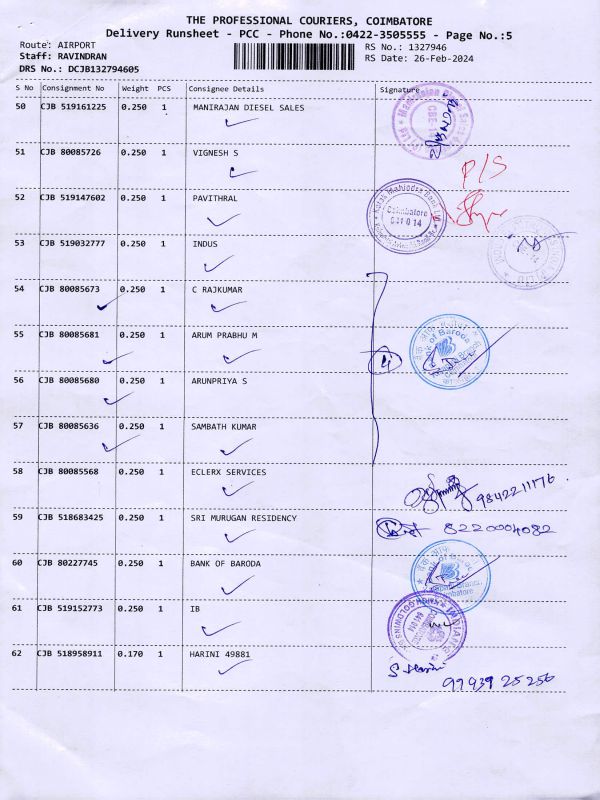 THE PROFESSIONAL COURIERS, COIMBATORE
Delivery Runsheet - PCC - Phone No.:0422-3505555 - Page No.:5
Route: AIRPORT RS No.: 1327946
Staff: RAVINDRAN RS Date: 26-Feb-2024
DRS No.: DCJB132794605
S No Consignment No Weight PCS Consignee Details Signature
50 CJB 519161225 0.250 1 MANIRAJAN DIESEL SALES
51 CJB 80085726 0.250 1 VIGNESH S
P/S
52 CJB 519147602 0.250 1 PAVITHRAL
Coimbatore
641 0 14
53 CJB 519032777 0.250 1 INDUS
54 CJB 80085673 0.250 1 C RAJKUMAR
55 CJB 80085681 0.250 1 ARUM PRABHU M
4
56 CJB 80085680 0.250 1 ARUNPRIYA S
57 CJB 80085636 0.250 1 SAMBATH KUMAR
58 CJB 80085568 0.250 1 ECLERX SERVICES
9842211176
59 CJB 518683425 0.250 1 SRI MURUGAN RESIDENCY
8220004082
60 CJB 80227745 0.250 1 BANK OF BARODA
61 CJB 519152773 0.250 1 IB
62 CJB 518958911 0.170 1 HARINI 49881
S Harini
99939 25256